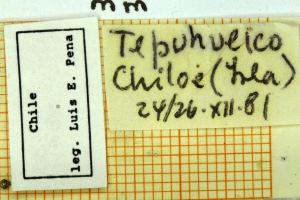 mm
Tepuhueico
Chiloe (Isla)
24/26.XII.81
Chile
leg. Luis E. Pena